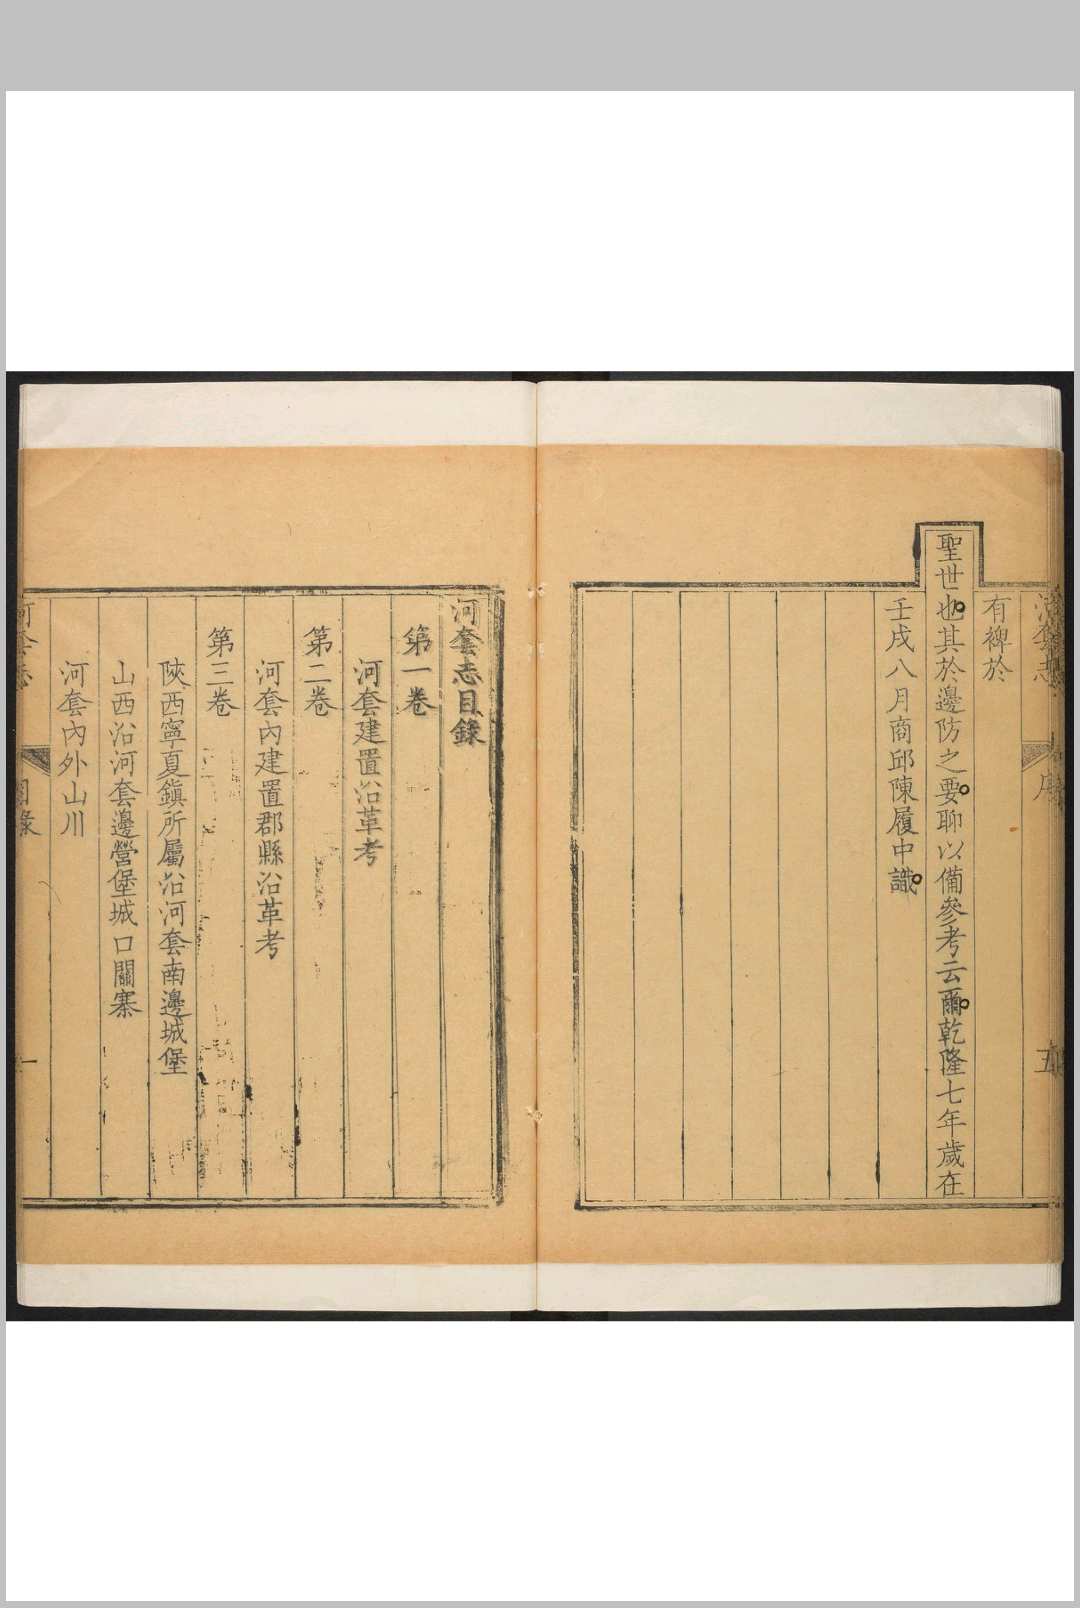 河套志
序
五
有裨於
聖世也其於邊防之要聊以備參考云爾乾隆七年歲在
壬戌八月商邱陳履中識
河套志目錄
第一卷
河套建置沿革考
第二卷
河套內建置郡縣沿革考
第三卷
陝西寧夏鎮所屬沿河套南邊城堡
山西沿河套邊營堡城口關寨
河套內外山川
河套志
目錄
一